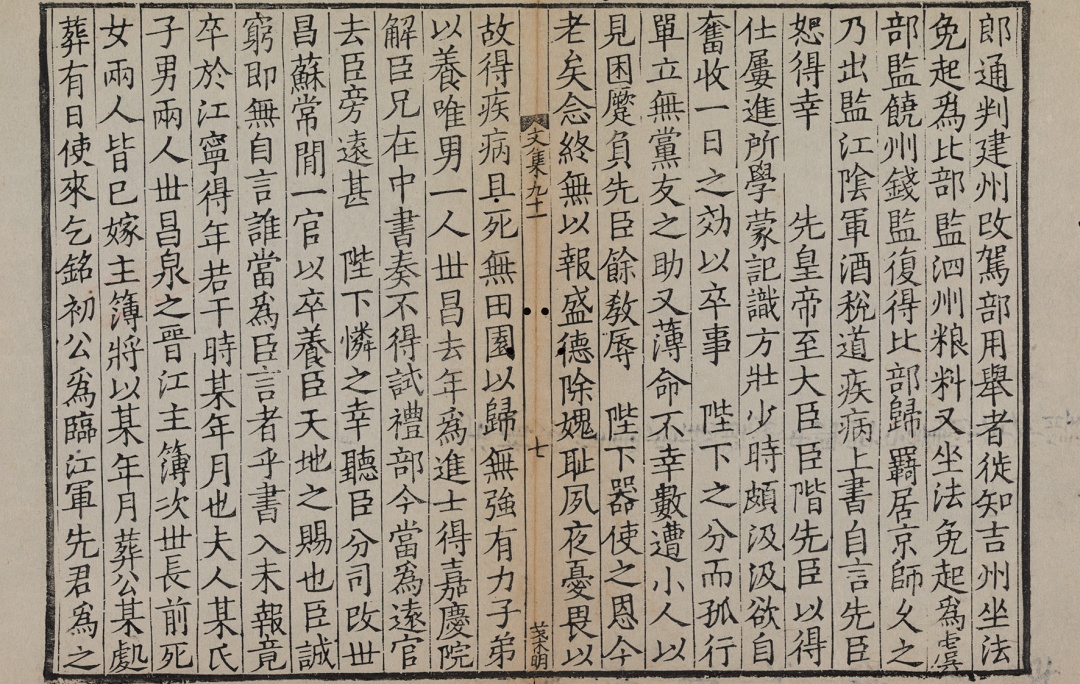 郎通判建州改駕部用舉者徙知吉州坐法
免起爲比部監泗州粮料又坐法免起爲虞
部監饒州錢監復得比部歸羇居京師久之
乃出監江陰軍酒稅道疾病上書自言先臣
恕得幸　　先皇帝至大臣臣階先臣以得
仕屢進所學蒙記識方壯少時頗汲汲欲自
奮收一日之効以卒事　陛下之分而孤行
單立無黨友之助又薄命不幸數遭小人以
見困蹷負先臣餘敎辱　陛下器使之恩今
老矣念終無以報盛德除媿耻夙夜憂畏以
文集九十一
七
故得疾病且死無田園以歸無強有力子弟
以養唯男一人世昌去年爲進士得嘉慶院
解臣兄在中書奏不得試禮部今當爲遠官
去臣旁遠甚　陛下憐之幸聽臣分司改世
昌蘇常閒一官以卒養臣天地之賜也臣誠
窮即無自言誰當爲臣言者乎書入未報竟
卒於江寧得年若干時某年月也夫人某氏
子男兩人世昌泉之晉江主簿次世長前死
女兩人皆已嫁主簿將以某年月葬公某處
葬有日使來乞銘初公爲臨江軍先君爲之